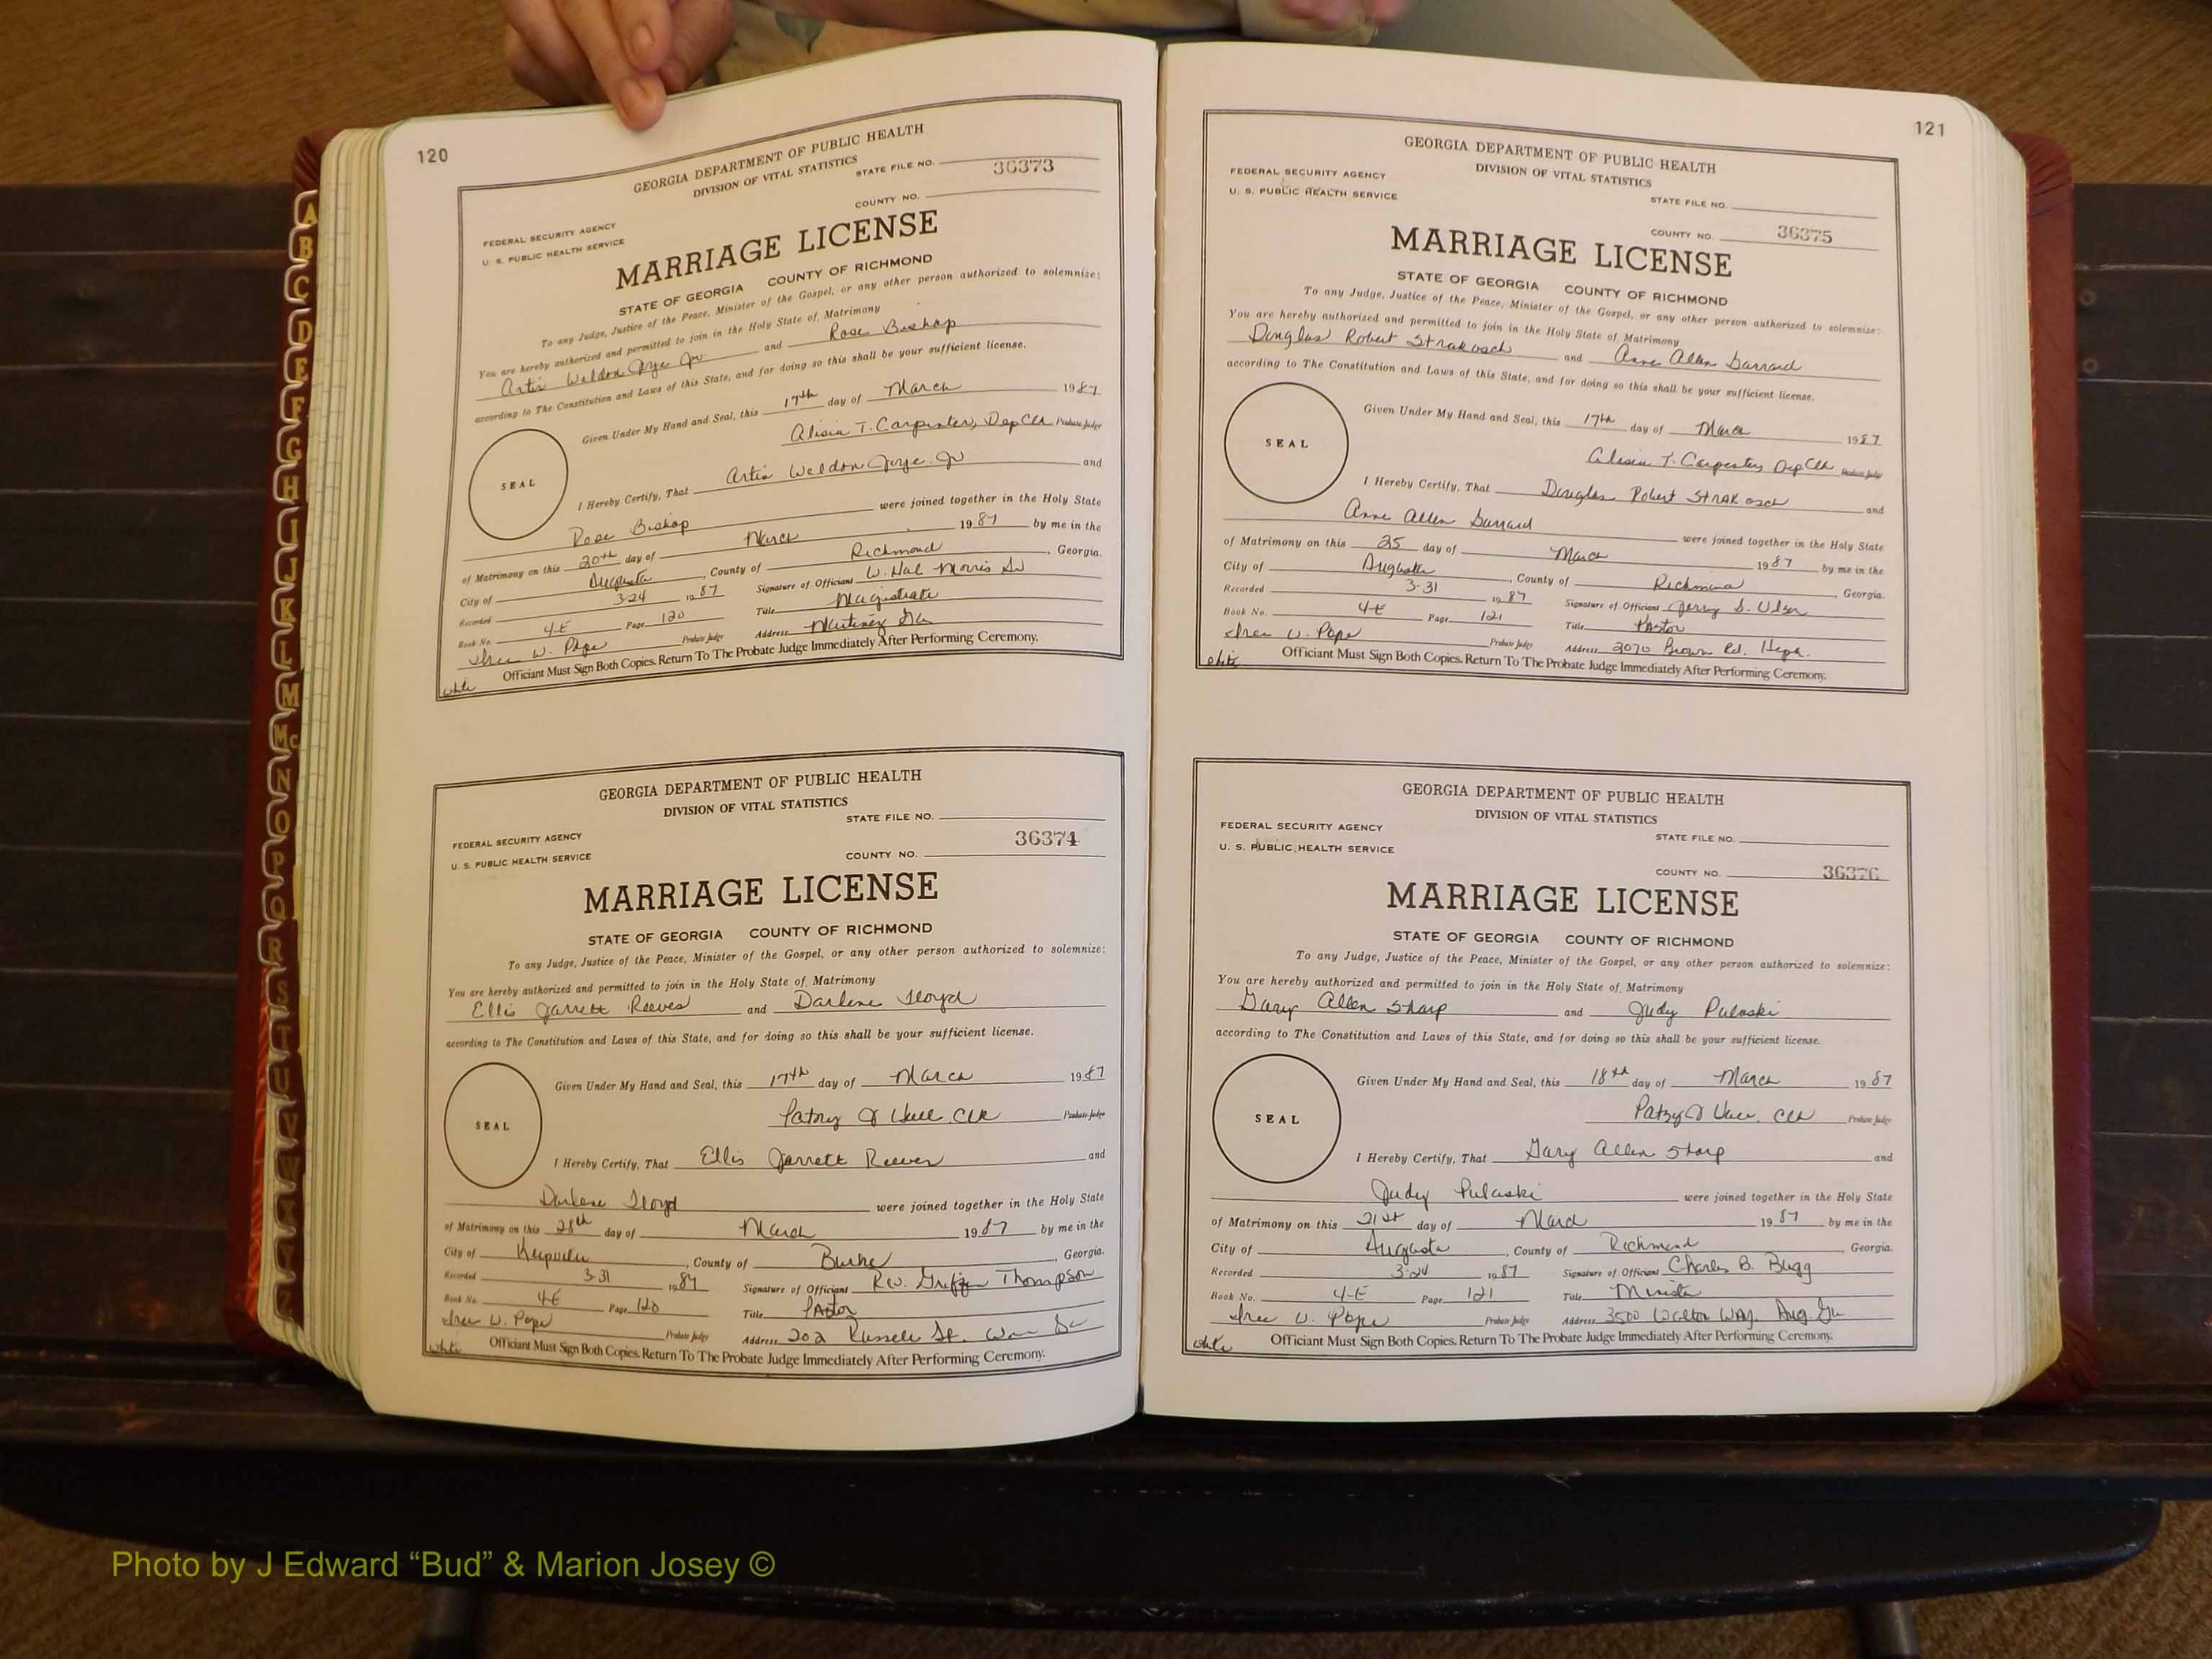 120
GEORGIA DEPARTMENT OF PUBLIC HEALTH
DIVISION OF VITAL STATISTICS
STATE FILE NO. 36373
COUNTY NO.
FEDERAL SECURITY AGENCY
U. S. PUBLIC HEALTH SERVICE
MARRIAGE LICENSE
STATE OF GEORGIA COUNTY OF RICHMOND
To any Judge, Justice of the Peace, Minister of the Gospel, or any other person authorized to solemnize:
You are hereby authorized and permitted to join in the Holy State of Matrimony
Artis Weldon Jr and Rose Bishop
according to The Constitution and Laws of this State, and for doing so this shall be your sufficient license.
Given Under My Hand and Seal, this 17th day of March 1987
Alisia T. Carpenter, Dep Clk Probate Judge
SEAL
I Hereby Certify, That Artis Weldon Jr and
Rose Bishop were joined together in the Holy State
of Matrimony on this 20th day of March 1987 by me in the
City of Augusta, County of Richmond, Georgia.
Recorded 3-24 1987 Signature of Officiant W. Hal Morris Sr
Book No. 4-E Page 120 Title Magistrate
W. Pope Probate Judge Address Martinez Ga
Officiant Must Sign Both Copies. Return To The Probate Judge Immediately After Performing Ceremony.
white
GEORGIA DEPARTMENT OF PUBLIC HEALTH
DIVISION OF VITAL STATISTICS
STATE FILE NO.
FEDERAL SECURITY AGENCY
36374
U. S. PUBLIC HEALTH SERVICE
COUNTY NO.
MARRIAGE LICENSE
STATE OF GEORGIA COUNTY OF RICHMOND
To any Judge, Justice of the Peace, Minister of the Gospel, or any other person authorized to solemnize:
You are hereby authorized and permitted to join in the Holy State of Matrimony
Ellis Jarrett Reeves and Darlene Floyd
according to The Constitution and Laws of this State, and for doing so this shall be your sufficient license.
Given Under My Hand and Seal, this 17th day of March 1987
Patsy J Clk Probate Judge
SEAL
I Hereby Certify, That Ellis Jarrett Reeves and
Darlene Floyd were joined together in the Holy State
of Matrimony on this 28th day of March 1987 by me in the
City of, County of Burke, Georgia.
Recorded 3-31 1987 Signature of Officiant Rev. Thompson
Book No. 4-E Page 120 Title Pastor
W. Pope Probate Judge Address 202 Russell St.
Officiant Must Sign Both Copies. Return To The Probate Judge Immediately After Performing Ceremony.
white
121
GEORGIA DEPARTMENT OF PUBLIC HEALTH
DIVISION OF VITAL STATISTICS
FEDERAL SECURITY AGENCY
U. S. PUBLIC HEALTH SERVICE
STATE FILE NO.
COUNTY NO. 36375
MARRIAGE LICENSE
STATE OF GEORGIA COUNTY OF RICHMOND
To any Judge, Justice of the Peace, Minister of the Gospel, or any other person authorized to solemnize:
You are hereby authorized and permitted to join in the Holy State of Matrimony
Douglas Robert Strakosch and Anne Allen Garrard
according to The Constitution and Laws of this State, and for doing so this shall be your sufficient license.
Given Under My Hand and Seal, this 17th day of March 1987
Alisia T. Carpenter, Dep Clk Probate Judge
SEAL
I Hereby Certify, That Douglas Robert Strakosch and
Anne Allen Garrard were joined together in the Holy State
of Matrimony on this 25 day of March 1987 by me in the
City of Augusta, County of Richmond, Georgia.
Recorded 3-31 1987 Signature of Officiant Jerry D.
Book No. 4-E Page 121 Title Pastor
W. Pope Probate Judge Address 2070 Brown Rd. Heph.
Officiant Must Sign Both Copies. Return To The Probate Judge Immediately After Performing Ceremony.
white
GEORGIA DEPARTMENT OF PUBLIC HEALTH
DIVISION OF VITAL STATISTICS
FEDERAL SECURITY AGENCY
STATE FILE NO.
U. S. PUBLIC HEALTH SERVICE
COUNTY NO. 36376
MARRIAGE LICENSE
STATE OF GEORGIA COUNTY OF RICHMOND
To any Judge, Justice of the Peace, Minister of the Gospel, or any other person authorized to solemnize:
You are hereby authorized and permitted to join in the Holy State of Matrimony
Gary Allen Sharp and Judy Pulaski
according to The Constitution and Laws of this State, and for doing so this shall be your sufficient license.
Given Under My Hand and Seal, this 18th day of March 1987
Patsy J Clk Probate Judge
SEAL
I Hereby Certify, That Gary Allen Sharp and
Judy Pulaski were joined together in the Holy State
of Matrimony on this 21st day of March 1987 by me in the
City of Augusta, County of Richmond, Georgia.
Recorded 3-24 1987 Signature of Officiant Charles B. Bugg
Book No. 4-E Page 121 Title Minister
W. Pope Probate Judge Address 3500 Walton Way, Aug Ga
Officiant Must Sign Both Copies. Return To The Probate Judge Immediately After Performing Ceremony.
white
A
B
C
D
E
F
G
H
I
J
K
L
M
Mc
N
O
P
Q
R
S
T
U
V
W
Photo by J Edward “Bud” & Marion Josey ©